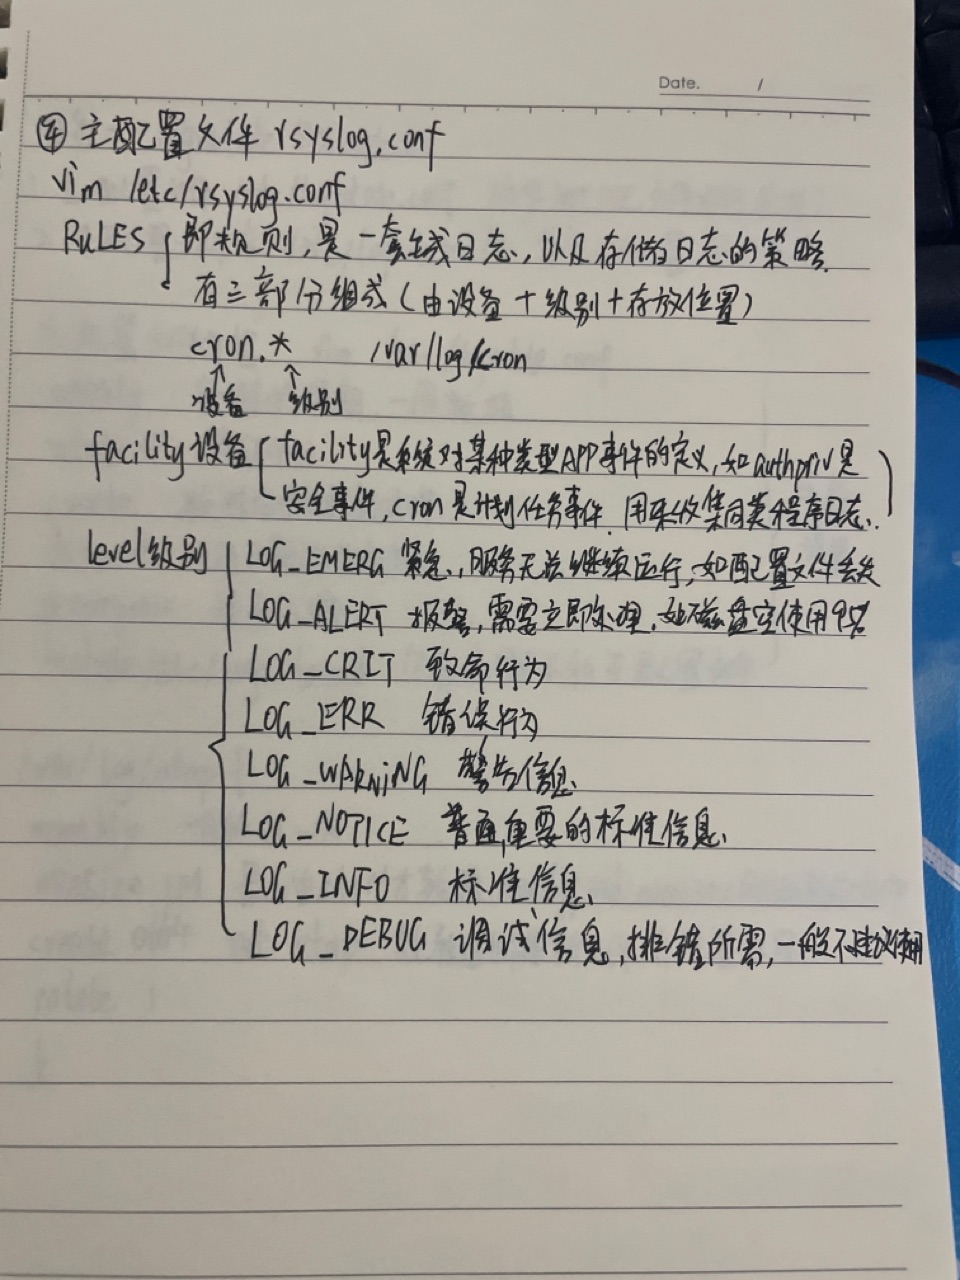 Date. /
④ 主配置文件 rsyslog.conf
vim /etc/rsyslog.conf
RULES 即规则,是一套生成日志,以及存储日志的策略
有三部分组成(由设备+级别+存放位置)
cron.* /var/log/cron
设备 级别
facility设备 facility是系统对某种类型APP事件的定义,如authpriv是
安全事件,cron是计划任务事件 用来收集同类程序日志.
level级别 LOG_EMERG 紧急,服务无法继续运行,如配置文件丢失
LOG_ALERT 报警,需要立即处理,如磁盘空使用95%
LOG_CRIT 致命行为
LOG_ERR 错误行为
LOG_WARNiNG 警告信息
LOG_NOTICE 普通,重要的标准信息
LOG_INFO 标准信息
LOG_DEBUG 调试信息,排错所需,一般不建议使用